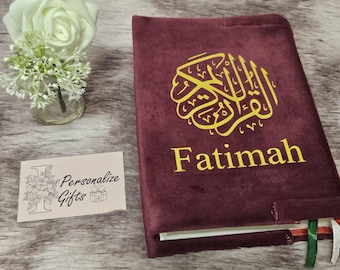 القرآن الكريم
Fatimah
Personalize
Gifts